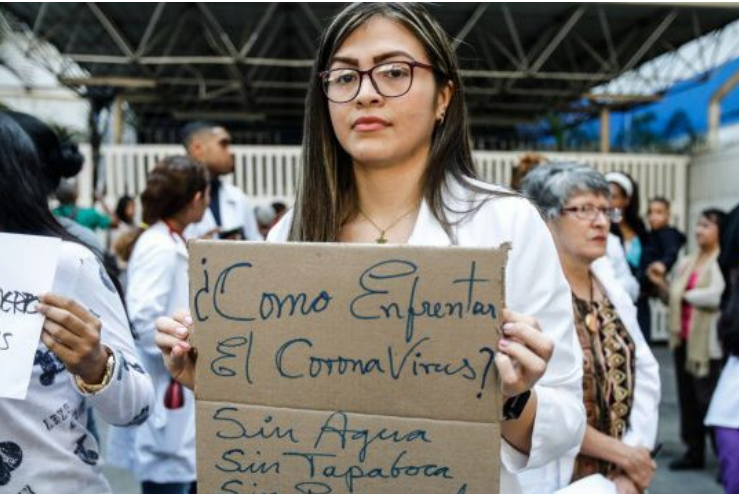 ¿Como Enfrentar
El CoronaVirus?
Sin Agua
Sin Tapaboca
Sin